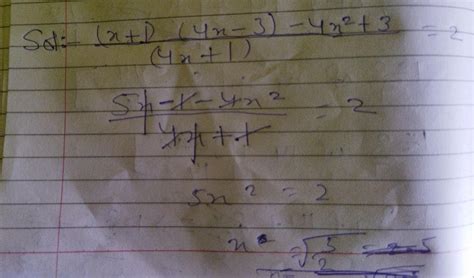 Sol:- (x+1) (4x-3) - 4x² + 3 = 2
(4x+1)
5x - 1 - 4x² = 2
4x + 1
5x² = 2
x = √